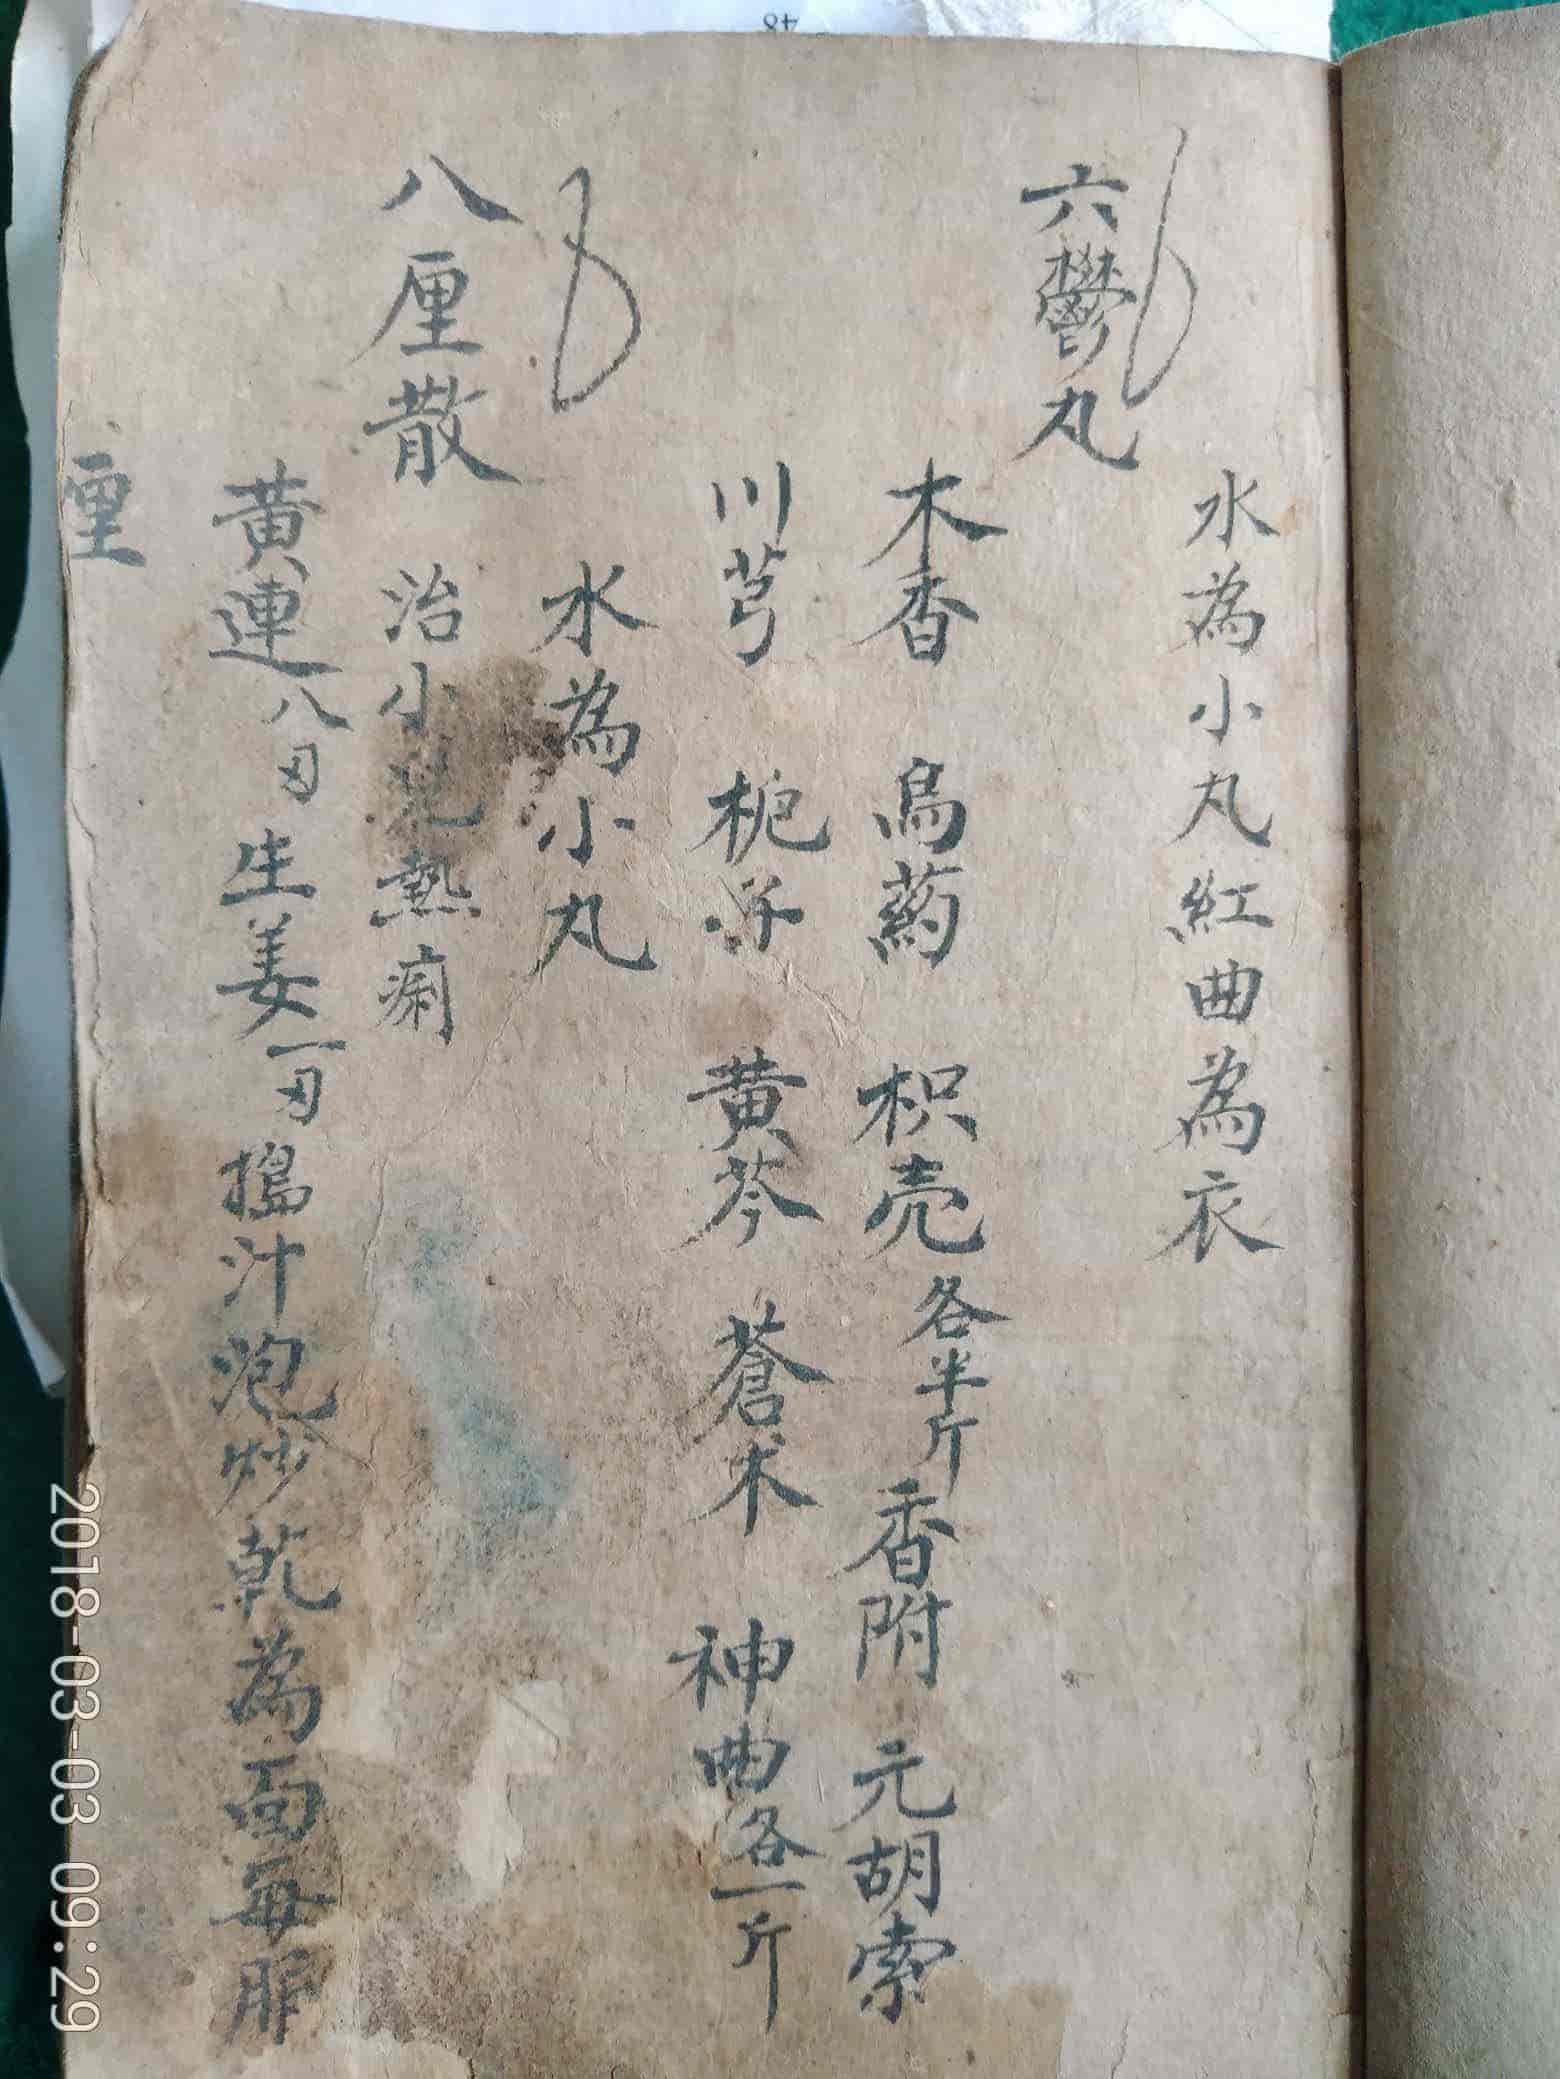 水為小丸紅曲為衣
六鬱丸
木香 烏药 枳壳各半斤香附 元胡索
川芎 栀子 黄芩 蒼术 神曲各一斤
水為小丸
八厘散 治小児熱痢
黄連八刄生姜一刄搗汁泡炒乾為面每服
厘
48
2018-03-03 09:29